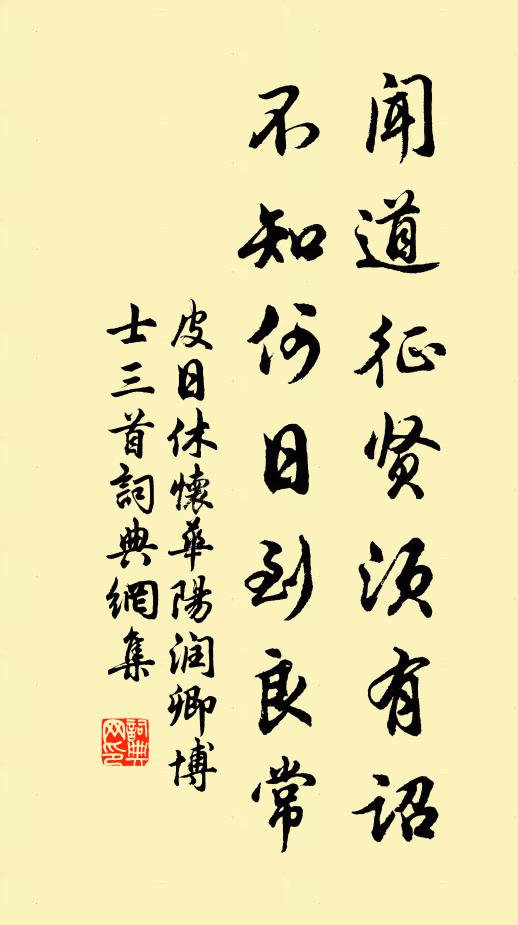 闻道征贤须有诏
不知何日到良常
皮日休懷華陽润卿博
士三首詞典網集
詞典
网印